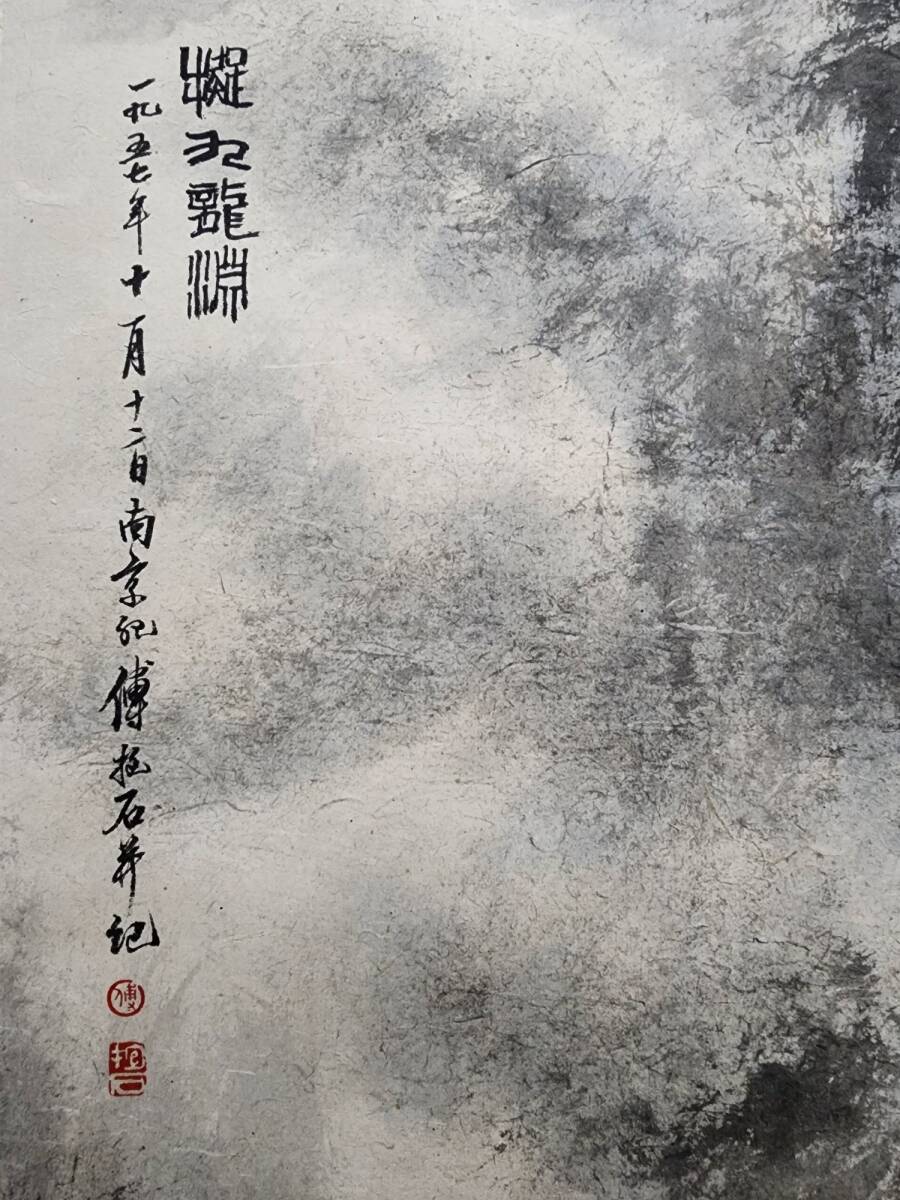 擬九龍淵
一九五七年十一月十二日南京記傅抱石并記
傅
抱石